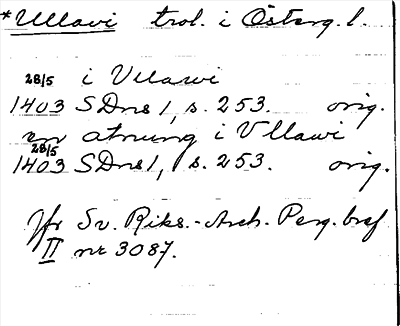 *Ullavi trol. i Österg. l.
28/5 i Vllawi
1403 SDns 1, s. 253. orig.
en atnung i Vllawi
28/5
1403 SDns 1, s. 253. orig.
Jfr Sv. Riks.-Arch. Perg. bref
II nr 3087.